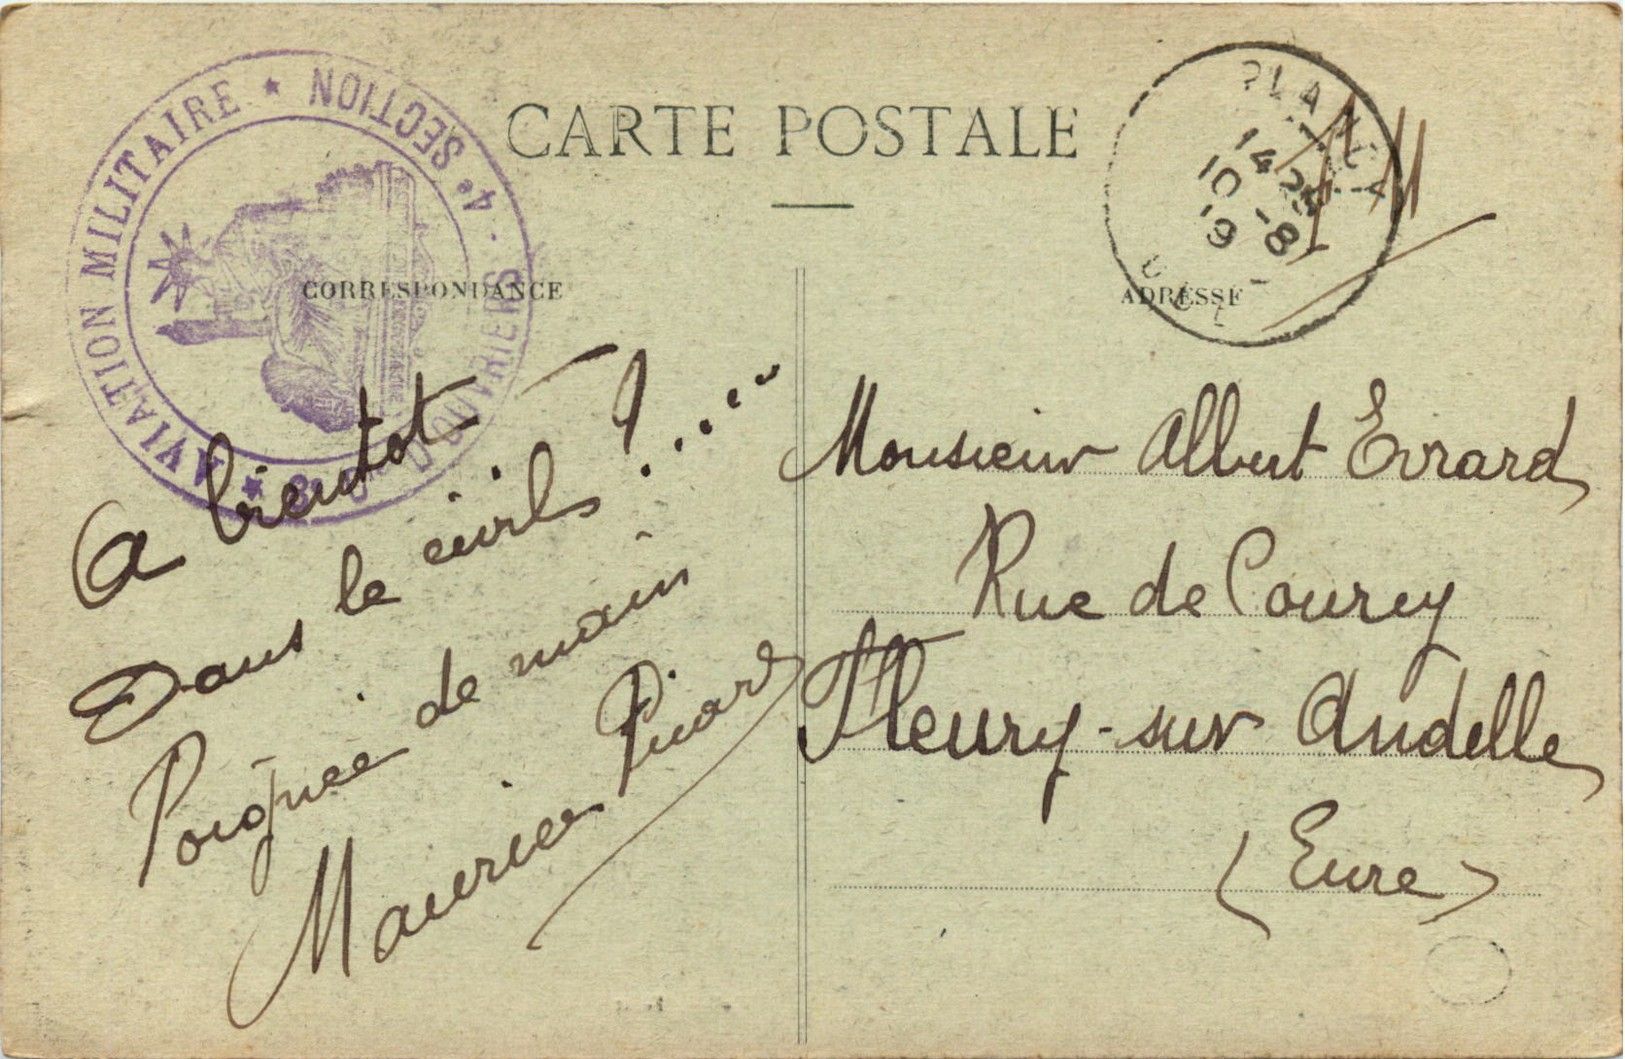 CARTE POSTALE
AVIATION MILITAIRE ★ 4e SECTION
D'OUVRIERS
PLANCY
14 25
10 - 8
19
CORRESPONDANCE
ADRESSE
A bientot
Dans le civils !....
Poignée de main
Maurice Picard
Monsieur Albert Evrard
Rue de Courcy
Fleury-sur Andelle
(Eure)